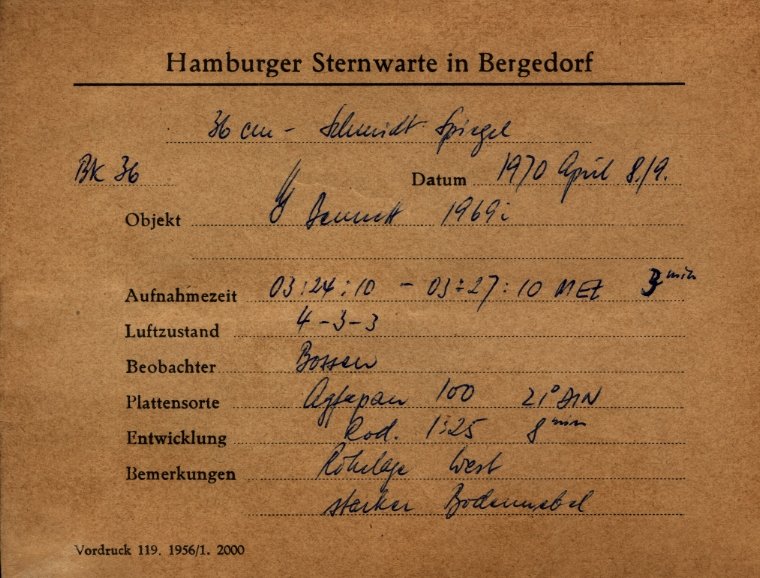 Hamburger Sternwarte in Bergedorf
36 cm - Schmidt Spiegel
BK 36 Datum 1970 April 8./9.
Objekt ☄ Bennett 1969i
Aufnahmezeit 03:24:10 - 03:27:10 MEZ 3 min
Luftzustand 4-3-3
Beobachter Bossen
Plattensorte Agfapan 100 21° DIN
Entwicklung Rod. 1:25 8 min
Bemerkungen Rohrlage West
starker Bodennebel
Vordruck 119. 1956/1. 2000